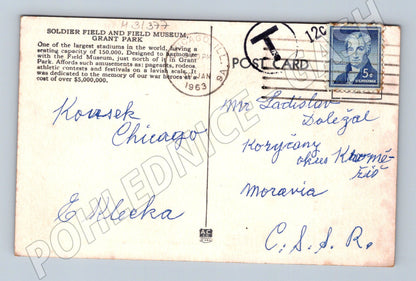 H-31377
SOLDIER FIELD AND FIELD MUSEUM,
GRANT PARK
One of the largest stadiums in the world, having a
seating capacity of 150,000. Designed to harmonize
with the Field Museum, just north of it in Grant
Park. Affords such amusements as: pageants, rodeos,
athletic contests and festivals on a lavish scale. It
was dedicated to the memory of our war heroes at a
cost of over $5,000,000.
JAN
1963
T
12c
POST CARD
5¢
Kousek
Chicago
E Klecka
Mr Ladislav
Doležal
Koryčany
okres Kromě-
říž
Moravia
C.S.R.
AC
POHLEDNICE